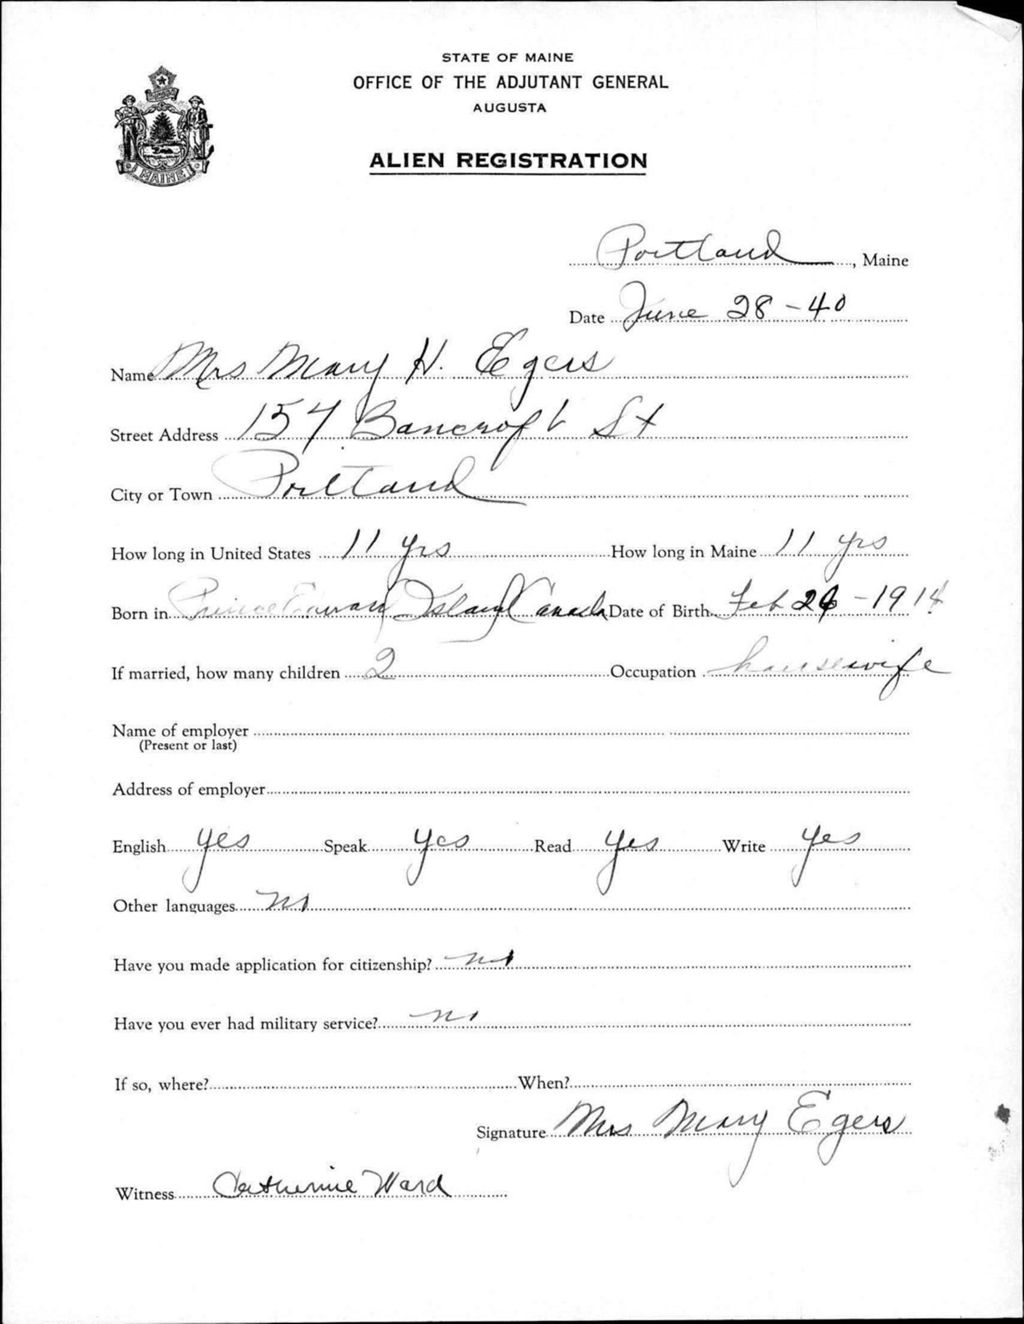 STATE OF MAINE
OFFICE OF THE ADJUTANT GENERAL
AUGUSTA
MAINE
ALIEN REGISTRATION
Portland, Maine
Date June 28-40
Name Mrs Mary H. Egers
Street Address 157 Bancroft St
City or Town Portland
How long in United States 11 yrs How long in Maine 11 yrs
Born in Prince Edward Island Canada Date of Birth Feb 1914
If married, how many children 2 Occupation housewife
Name of employer
(Present or last)
Address of employer
English yes Speak yes Read yes Write yes
Other languages no
Have you made application for citizenship? no
Have you ever had military service? no
If so, where? When?
Signature Mrs Mary Egers
Witness Catherine Ward